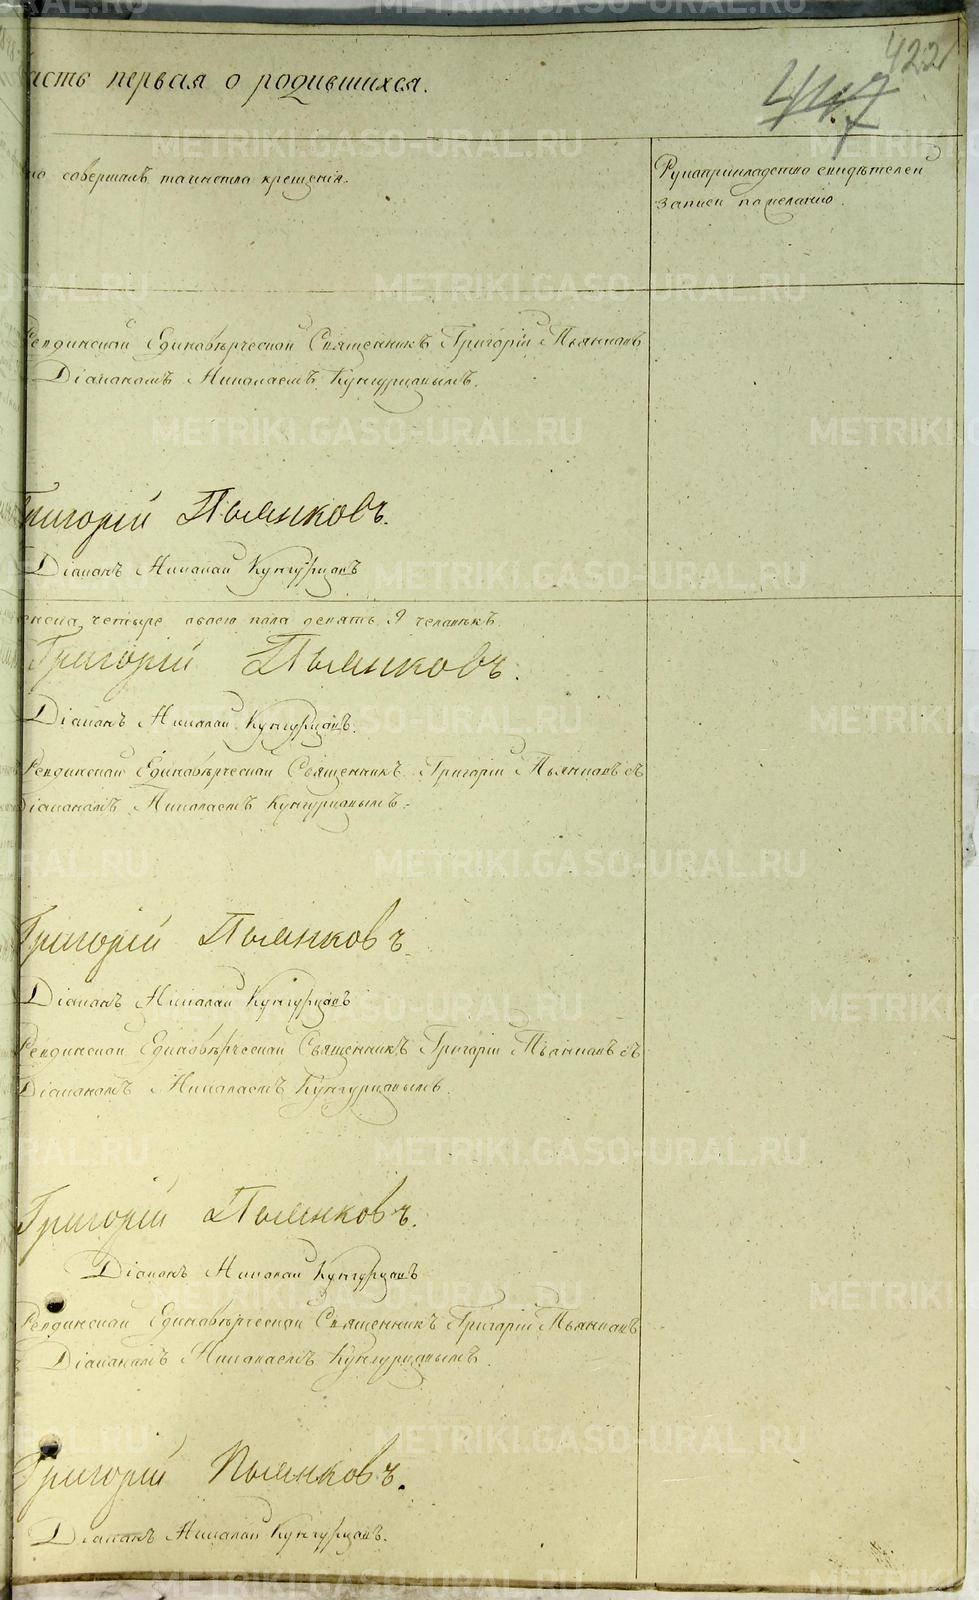 422
417
часть первая о родившихся.
то совершалъ таинство крещенія.
Рукоприкладство свидѣтелей
записи по желанію.
Ревдинской Единовѣрческой Священникъ Григорій Пьянковъ
Діакономъ Николаемъ Кунгурцовымъ.
Григорій Пьянковъ.
Діаконъ Николай Кунгурцовъ
женска четыре обоего пола девять 9 человѣкъ.
Григорій Пьянковъ.
Діаконъ Николай Кунгурцовъ.
Ревдинской Единовѣрческой Священникъ Григорій Пьянковъ съ
Діакономъ Николаемъ Кунгурцовымъ.
Григорій Пьянковъ.
Діаконъ Николай Кунгурцовъ
Ревдинской Единовѣрческой Священникъ Григорій Пьянковъ съ
Діакономъ Николаемъ Кунгурцовымъ.
Григорій Пьянковъ.
Діаконъ Николай Кунгурцовъ
Ревдинской Единовѣрческой Священникъ Григорій Пьянковъ
Діакономъ Николаемъ Кунгурцовымъ.
Григорій Пьянковъ.
Діаконъ Николай Кунгурцовъ.
METRIKI.GASO-URAL.RU